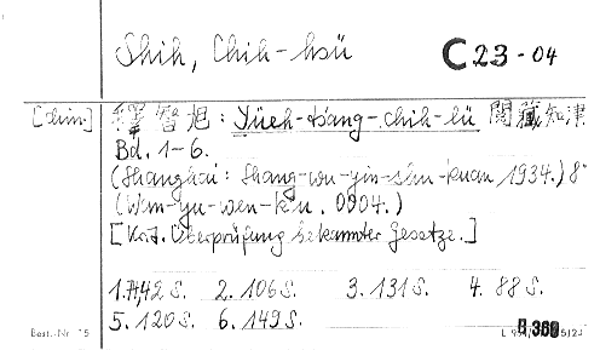 Shih, Chih-hsü
C 23-04
[chin.] 釋智旭: Yüeh-ts'ang-chih-lü 閱藏知津
Bd. 1-6.
(Shanghai: Shang-wu-yin-shu-kuan 1934.) 8°
(Wan-yu-wen-k'u. 0004.)
[Krit. Überprüfung bekannter Gesetze.]
1. 42 S. 2. 106 S. 3. 131 S. 4. 88 S.
5. 120 S. 6. 149 S.
Best.-Nr. 15
B 360